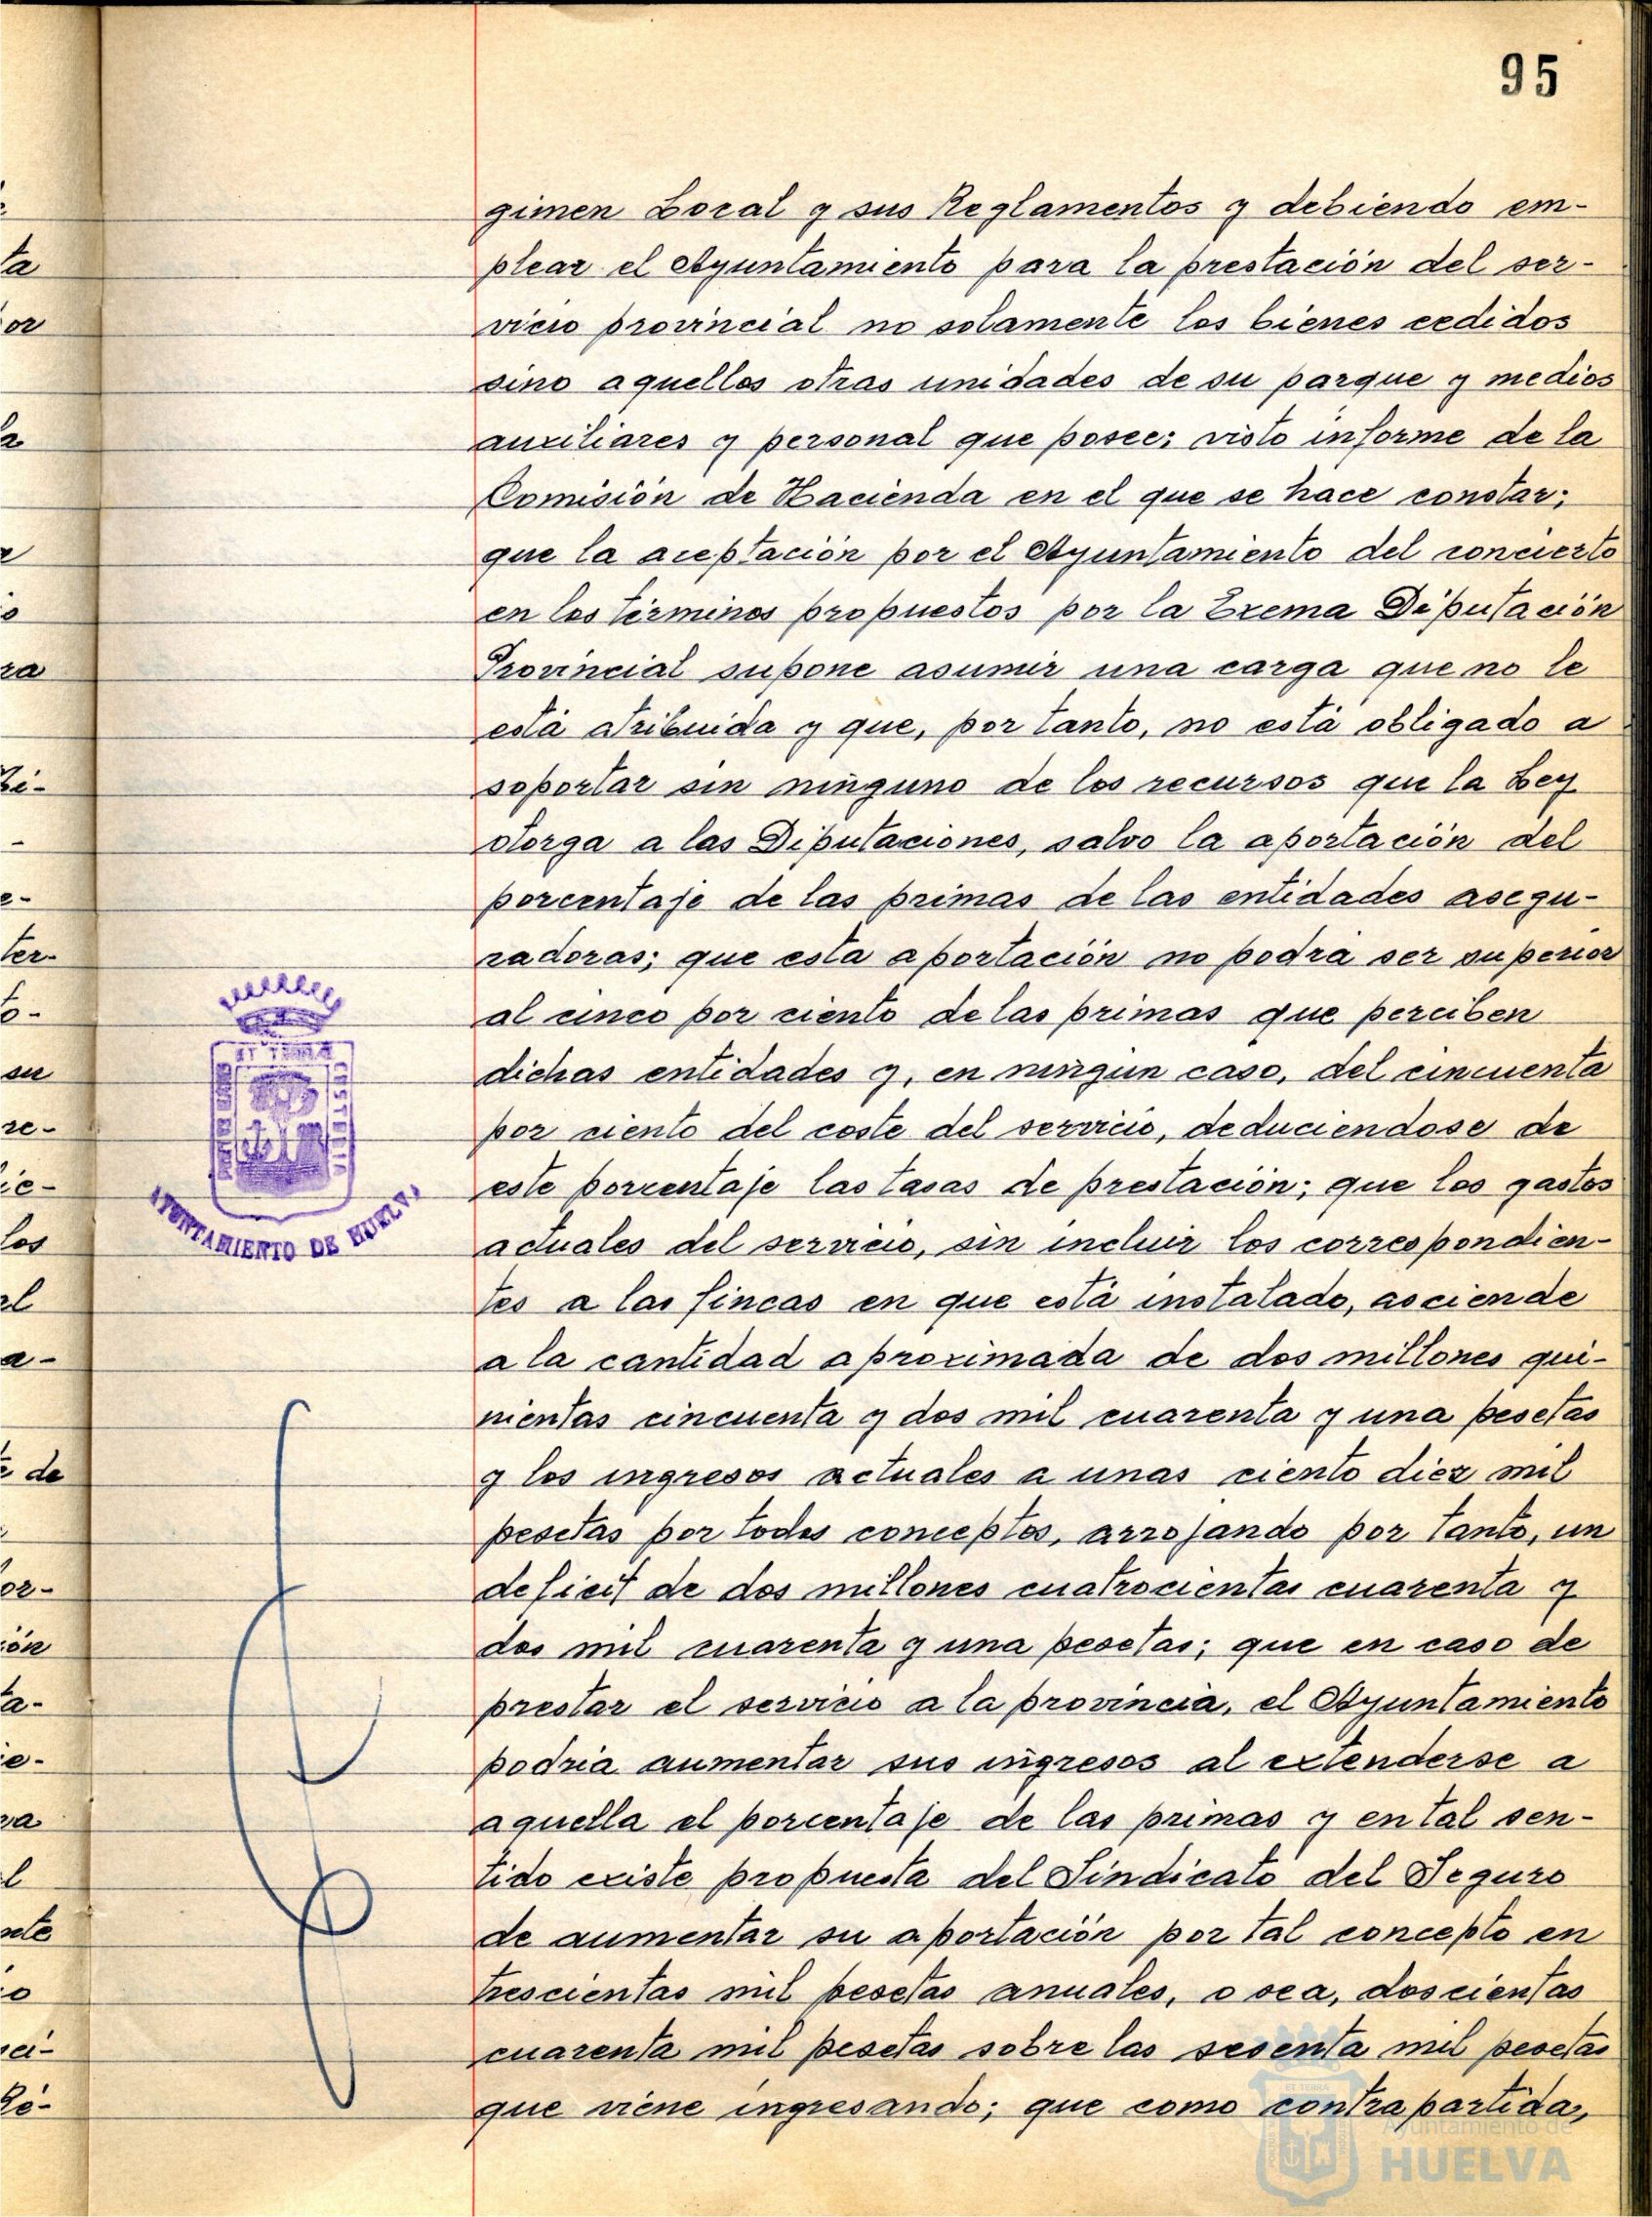 95
gimen Local y sus Reglamentos y debiendo em-
plear el Ayuntamiento para la prestación del ser-
vicio provincial no solamente los bienes cedidos
sino aquellos otras unidades de su parque y medios
auxiliares y personal que posee; visto informe de la
Comisión de Hacienda en el que se hace constar;
que la aceptación por el Ayuntamiento del concierto
en los términos propuestos por la Excma Diputación
Provincial supone asumir una carga que no le
está atribuida y que, por tanto, no está obligado a
soportar sin ninguno de los recursos que la Ley
otorga a las Diputaciones, salvo la aportación del
porcentaje de las primas de las entidades asegu-
radoras; que esta aportación no podrá ser superior
al cinco por ciento de las primas que perciben
dichas entidades y, en ningún caso, del cincuenta
por ciento del coste del servicio, deduciendose de
este porcentaje las tasas de prestación; que los gastos
actuales del servicio, sin incluir los correspondien-
tes a las fincas en que está instalado, asciende
a la cantidad aproximada de dos millones qui-
nientas cincuenta y dos mil cuarenta y una pesetas
y los ingresos actuales a unas ciento diez mil
pesetas por todos conceptos, arrojando por tanto, un
deficit de dos millones cuatrocientas cuarenta y
dos mil cuarenta y una pesetas; que en caso de
prestar el servicio a la provincia, el Ayuntamiento
podria aumentar sus ingresos al extenderse a
aquella el porcentaje de las primas y en tal sen-
tido existe propuesta del Sindicato del Seguro
de aumentar su aportación por tal concepto en
trescientas mil pesetas anuales, o sea, doscientas
cuarenta mil pesetas sobre las sesenta mil pesetas
que viene ingresando; que como contrapartida,
AYUNTAMIENTO DE HUELVA
Ayuntamiento de
HUELVA